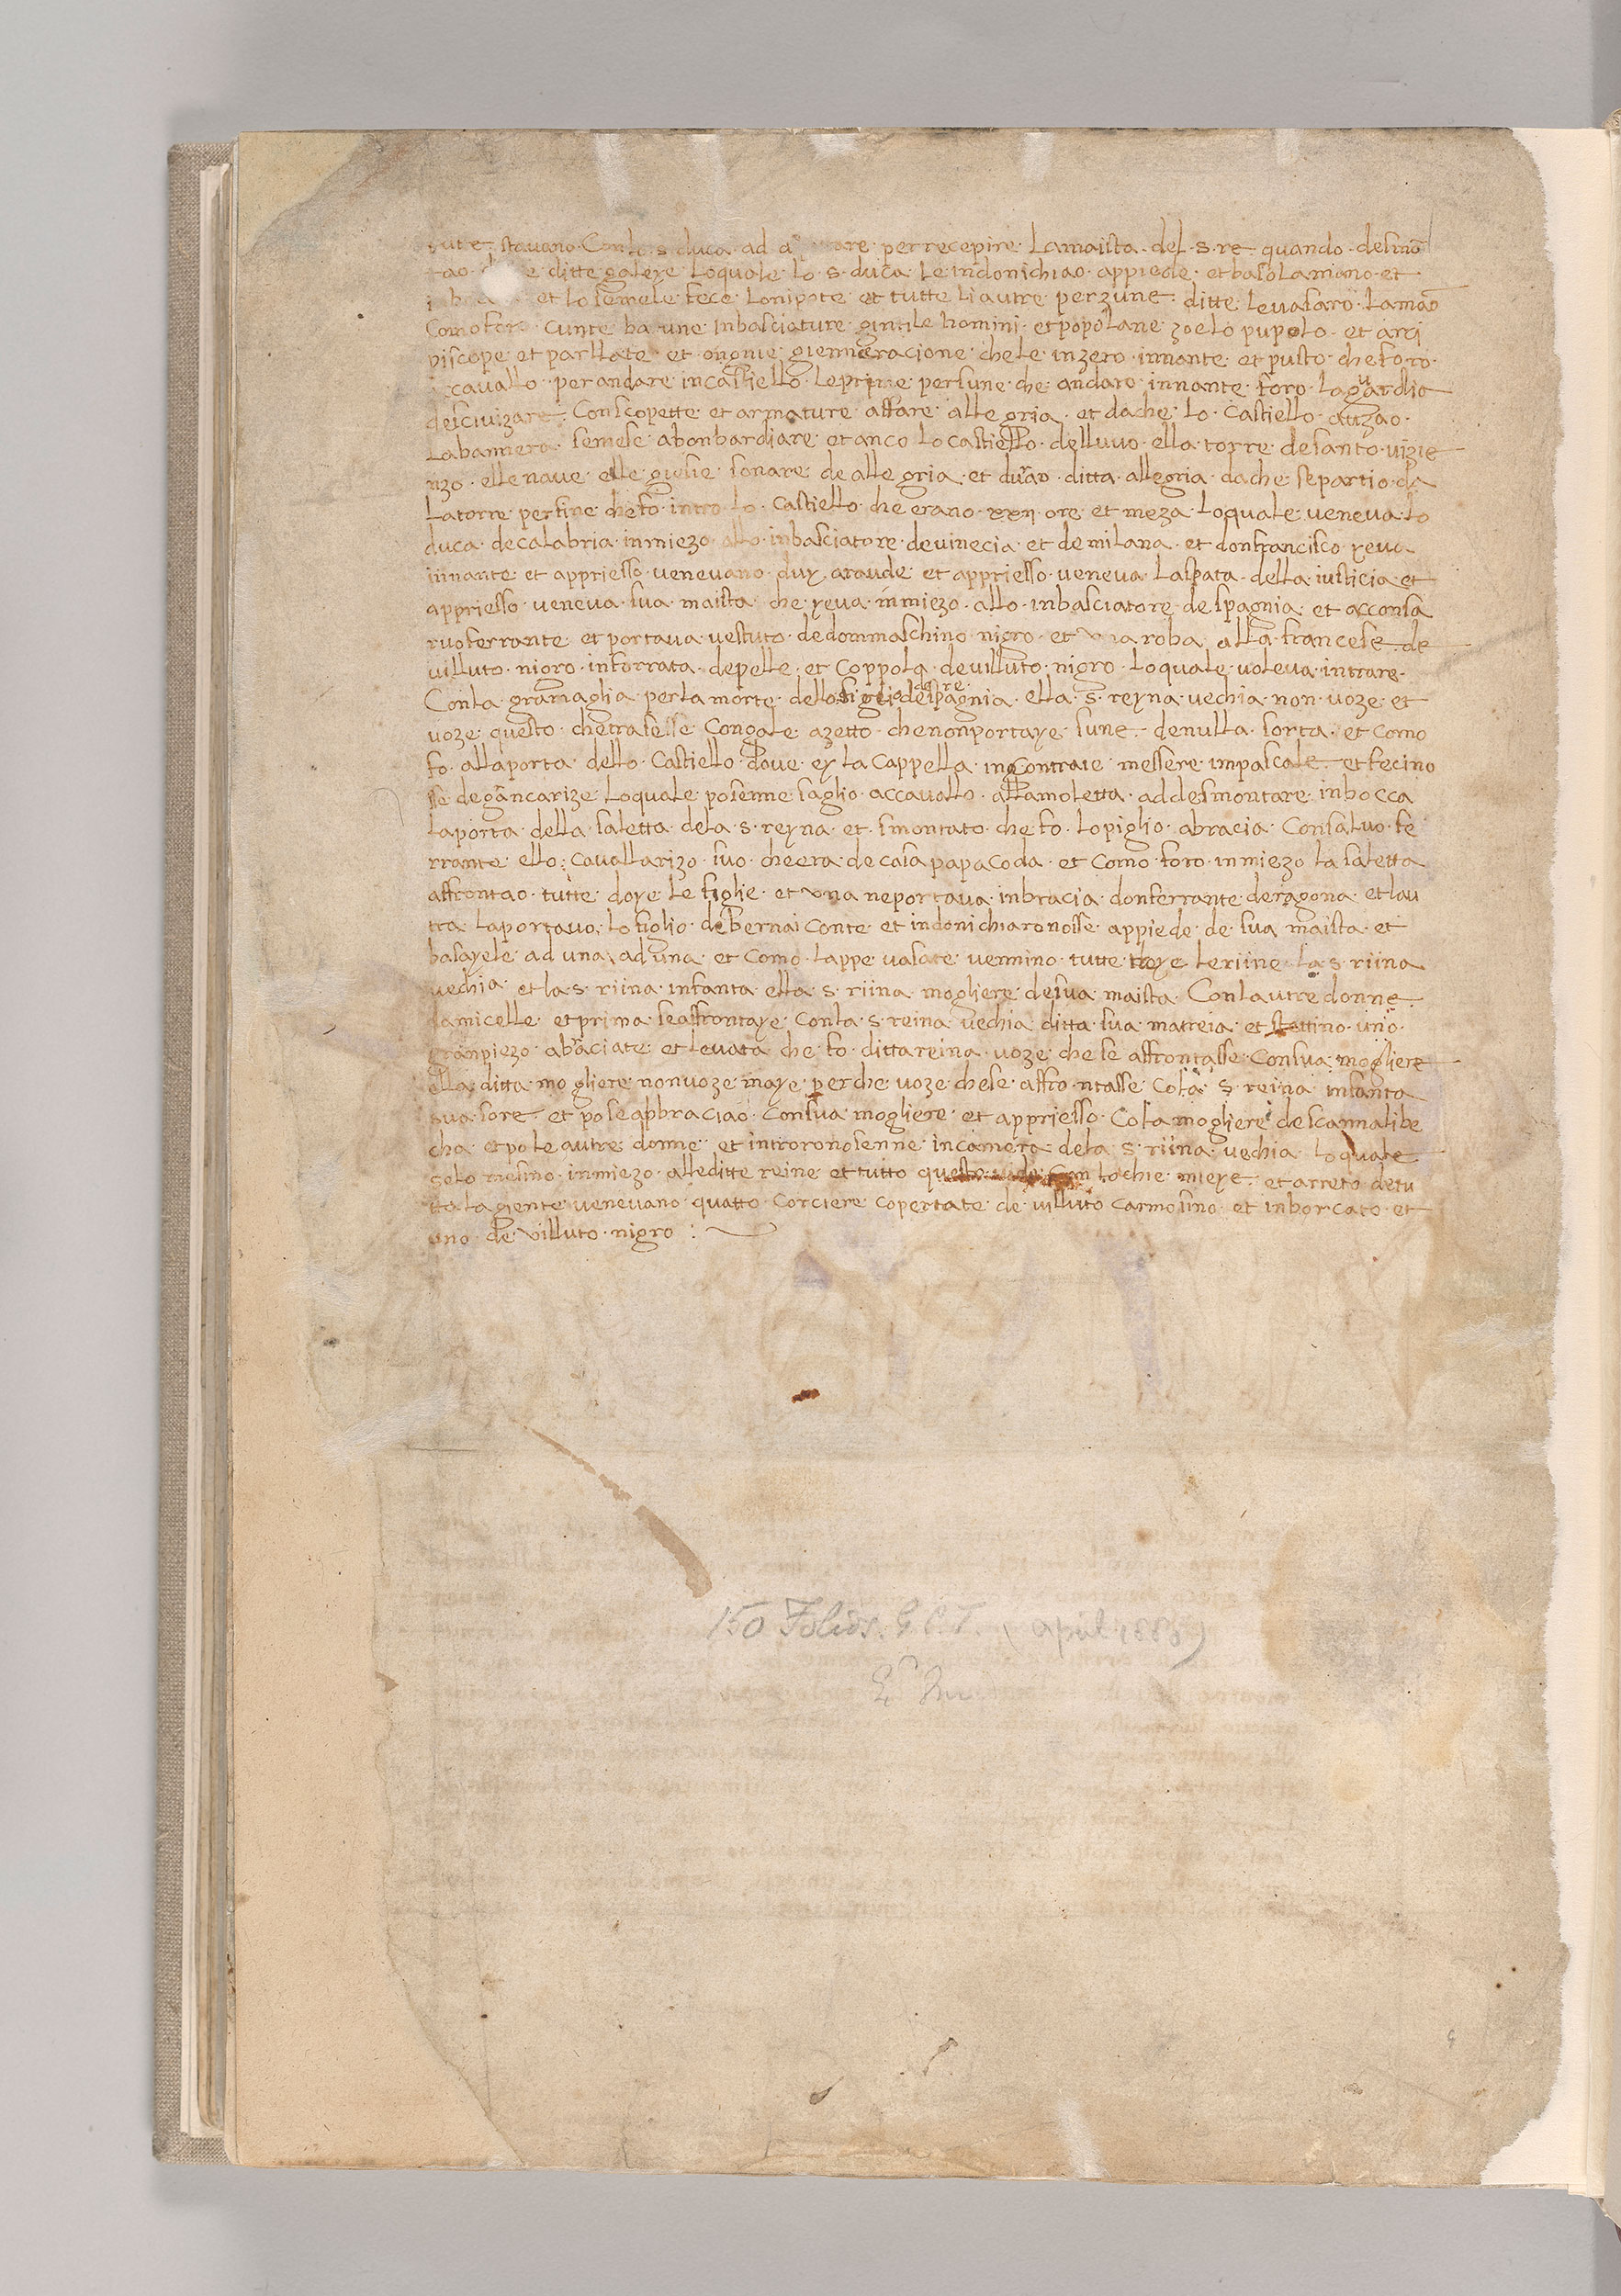 stavano · Con lo · s · duca · ad are · per recepire · La maista · del · s · re · quando · desmō
tao · ditte galeye Loquale · lo · s · duca · Le indonichiao · appiede · et baso La mano · et
et lo semele · fece · Lonipote · et tutte li autre · perzune · ditte · Levasarō · La mao
Como cunte · barune · inbasciature · gintile homini · et popolane zoelo pupolo · et arci
viscope et parllate · et ongnie giennieracione · che le inzero · innante · et pusto · che foro ·
accavallo · per andare in castiello · Le prime persune · che · andaro · innante · foro · La guardia
de scivizare · Con scopette · et armature · affare · alle gria · et da che · lo · Castiello · auzao ·
La bannera · semese · abonbardiare · et anco · lo castiello · delluvo · ella · torre · de santo · vizie
nzo · elle nave · elle giesie · sonare · de alle gria · et durao · ditta · allegria · da che · se partio · da
La torre · perfine · che fo · intro · lo · Castiello · che erano · xxij · ore · et meza · Loquale · veneva · lo
duca · de calabria · inmiezo · allo · inbasciatore · de vinecia · et de milana · et don francisco · yeva
innante · et appriesso · venevano · duy · araude · et appriesso · veneva · La spata · della iusticia et
appriesso · veneva · sua · maista · che · yeva · inmiezo · allo · inbasciatore · de spagnia · et acconsa
rvo ferrante · et portava · vestuto · de dommaschino · nigro · et una roba · alla · francese · de
villuto · nigro · inforrata · de pelle · et Coppola · de villuto · nigro · Loquale · voleva · intrare ·
Con la · gramaglia · per la morte · dello figlio de re spagnia · ella · s · reyna · vechia · non · voze · et
voze · questo · che trasesse · Con gale · azetto · che non portaye · sune · de nulla · sorta · et Como
fo · alla porta · dello · Castiello · dove · ey la Cappella · incontraie · messere · impascale · et fecino
sse de gāncarize · Loquale · posenne · saglio · accavallo · alla moletta · ad desmontare · in bocca
La porta · della · saletta · dela · s · reyna · et · smontato · che fo · lo piglio · abracia · Consalvo · fe
rrante · ello · Cavallarizo · suo · che era · de casa papa coda · et Como · foro · inmiezo la saletta
affrontao · tutte · doye le figlie · et una ne portava · inbracia · don ferrante · de ragona · et lau
tra · La portavo · Lo figlio · de bernai Conte · et indonichiaronosse · appiede · de · sua · maista · et
basayele · ad una ad una · et Como · Lappe · vasate · vennino · tutte · troye · Le riine · la · s · riina
vechia · et la · s · riina · infanta · ella · s · riina · mogliere · de sua · maista · Con lautre donne ·
damicelle · et prima · se affrontaye · Con la · s · reina · vechia · ditta · sua · matreia · et stettino · uno ·
gran piezo · abraciate · et levata · che · fo · ditta reina · voze · che se · affrontasse · Con sua · mogliere
ella · ditta · mo gliere · non voze · maye · perche · voze · che se · affro ntasse · Cola · s · reina · infanta
sua · sore · et po se abbraciao · Con sua · mogliere · et appriesso · Cola mogliere · de scannalibe
cha · et po le autre · donne · et introronosenne · in camera · dela · s · riina · vechia · loquale
selo misino · inmiezo · alle ditte · reine · et tutto questo vide Con lochie · mieye · et arreto · de tu
tta · la giente · venevano · quatto · Corciere · Copertate · de · villuto · Carmosino · et inborcato · et
uno · de villuto · nigro :
150 Folios. G.C.T. (April 1886)